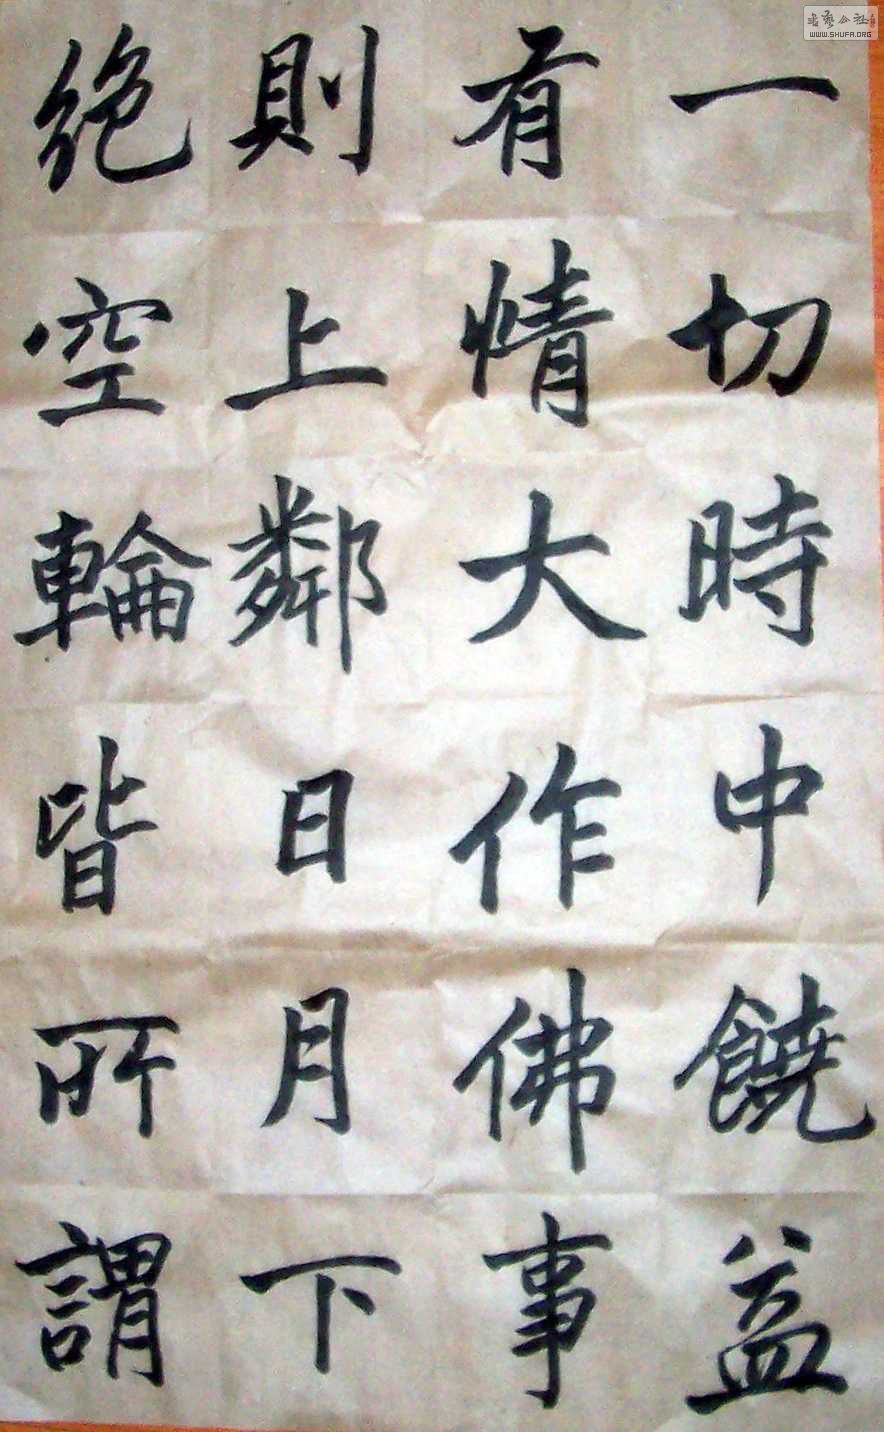 一切時中饒益
有情大作佛事
則上鄰日月下
絶空輪皆所謂
WWW.SHUFA.ORG